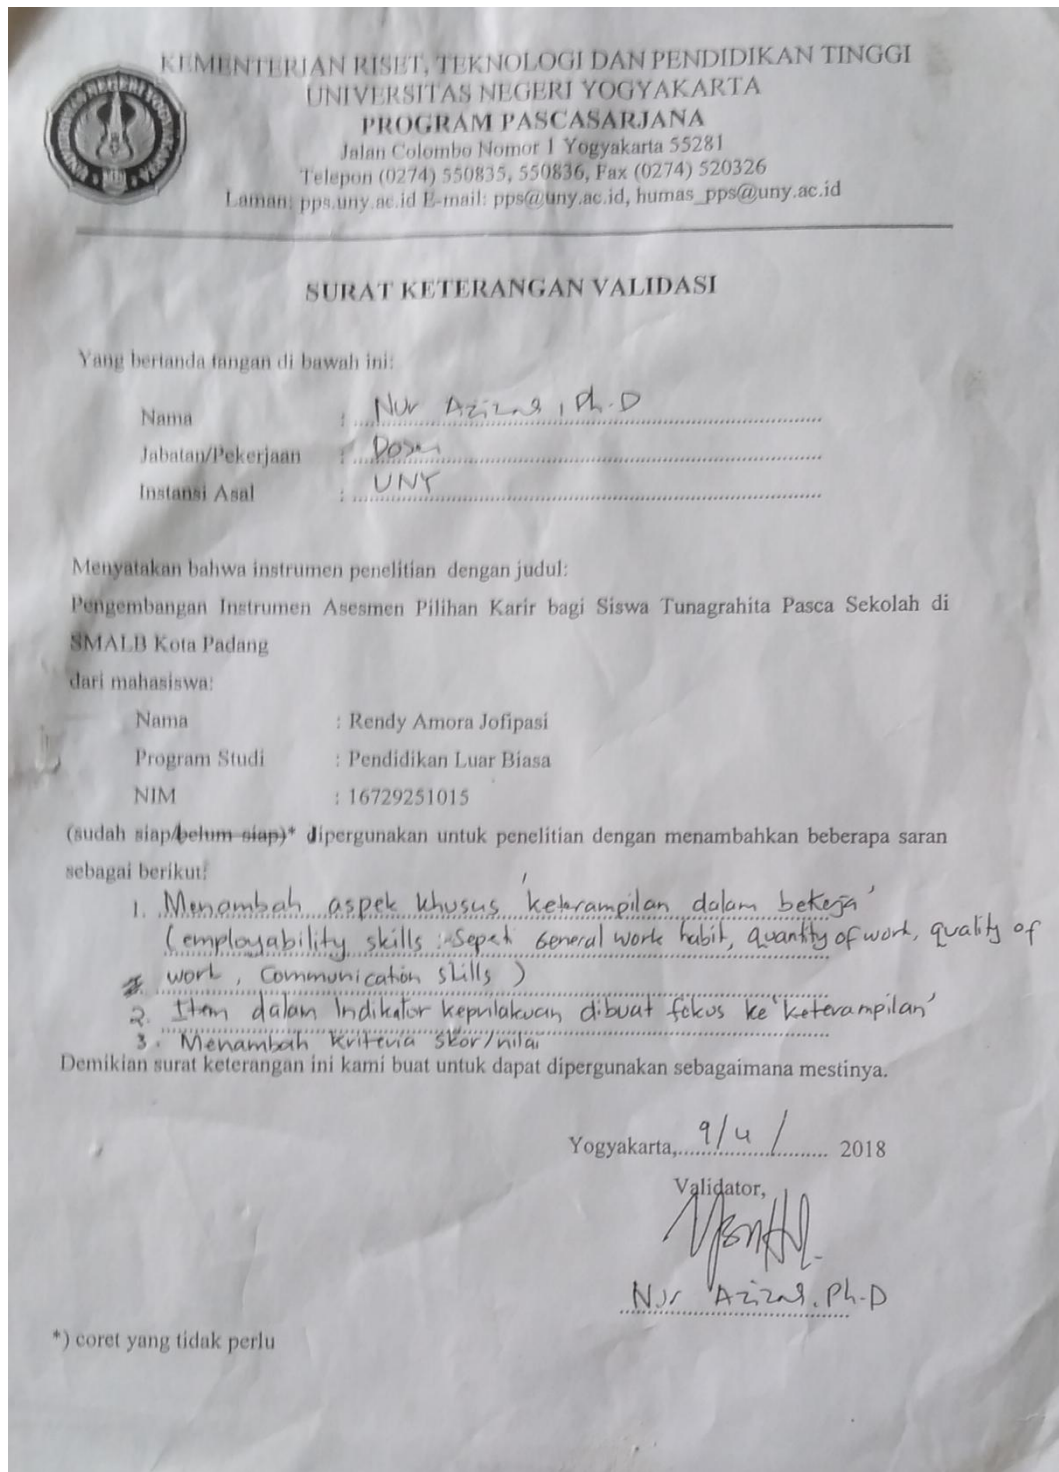 KEMENTERIAN RISET, TEKNOLOGI DAN PENDIDIKAN TINGGI
UNIVERSITAS NEGERI YOGYAKARTA
PROGRAM PASCASARJANA
Jalan Colombo Nomor 1 Yogyakarta 55281
Telepon (0274) 550835, 550836, Fax (0274) 520326
Laman: pps.uny.ac.id E-mail: pps@uny.ac.id, humas_pps@uny.ac.id
UNIVERSITAS NEGERI YOGYAKARTA
SURAT KETERANGAN VALIDASI
Yang bertanda tangan di bawah ini:
Nama : Nur Azizah, Ph.D
Jabatan/Pekerjaan : Dosen
Instansi Asal : UNY
Menyatakan bahwa instrumen penelitian dengan judul:
Pengembangan Instrumen Asesmen Pilihan Karir bagi Siswa Tunagrahita Pasca Sekolah di
SMALB Kota Padang
dari mahasiswa:
Nama : Rendy Amora Jofipasi
Program Studi : Pendidikan Luar Biasa
NIM : 16729251015
(sudah siap/belum siap)* dipergunakan untuk penelitian dengan menambahkan beberapa saran
sebagai berikut:
1. Menambah aspek khusus 'keterampilan dalam bekerja'
(employability skills : Seperti General work habit, quantity of work, quality of
work, Communication skills)
2. Item dalam Indikator keprilakuan dibuat fokus ke 'keterampilan'
3. Menambah kriteria skor/nilai
Demikian surat keterangan ini kami buat untuk dapat dipergunakan sebagaimana mestinya.
Yogyakarta, 9/4/ 2018
Validator,
Nur Azizah, Ph.D
*) coret yang tidak perlu